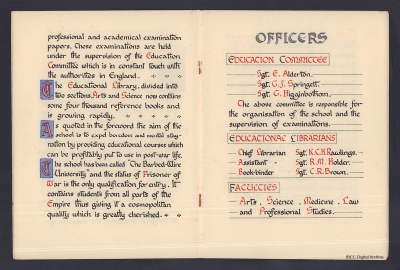 professional and academical examination
papers. These examinations are held
under the supervision of the Education
Committee which is in constant touch with
the authorities in England.
The Educational Library, divided into
two sections, Arts and Science now contains
some four thousand reference books and
is growing rapidly.
As quoted in the foreword the aim of the
school is to expel boredom and mental stag-
nation by providing educational courses which
can be profitably put to use in post-war life.
The school has been called "The Barbed-Wire
University" and the status of Prisoner of
War is the only qualification for entry. It
contains students from all parts of the
Empire thus giving it a cosmopolitan
quality which is greatly cherished.
OFFICERS
EDUCATION COMMITTEE
Sgt. E. Alderton.
Sgt. G.J. Springett.
Sgt. G. Higginbottom.
The above committee is responsible for
the organisation of the school and the
supervision of examinations.
EDUCATIONAL LIBRARIANS
Chief Librarian Sgt. K.C.H. Rawlings.
Assistant " Sgt. R.M. Holder.
Book-binder Sgt. C.R. Brown.
FACULTIES
Arts, Science, Medicine, Law
and Professional Studies.
©ICC Digital Archive